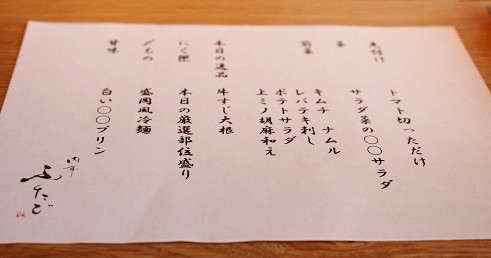 先付け
トマト切っただけ
菜
サラダ菜の〇〇サラダ
前菜
キムチ ナムル
レバテキ刺し
ポテトサラダ
上ミノ胡麻和え
本日の逸品
牛すじ大根
にく匣
本日の厳選部位盛り
〆もの
盛岡風冷麺
甘味
白い〇〇プリン
肉亭
ふたご